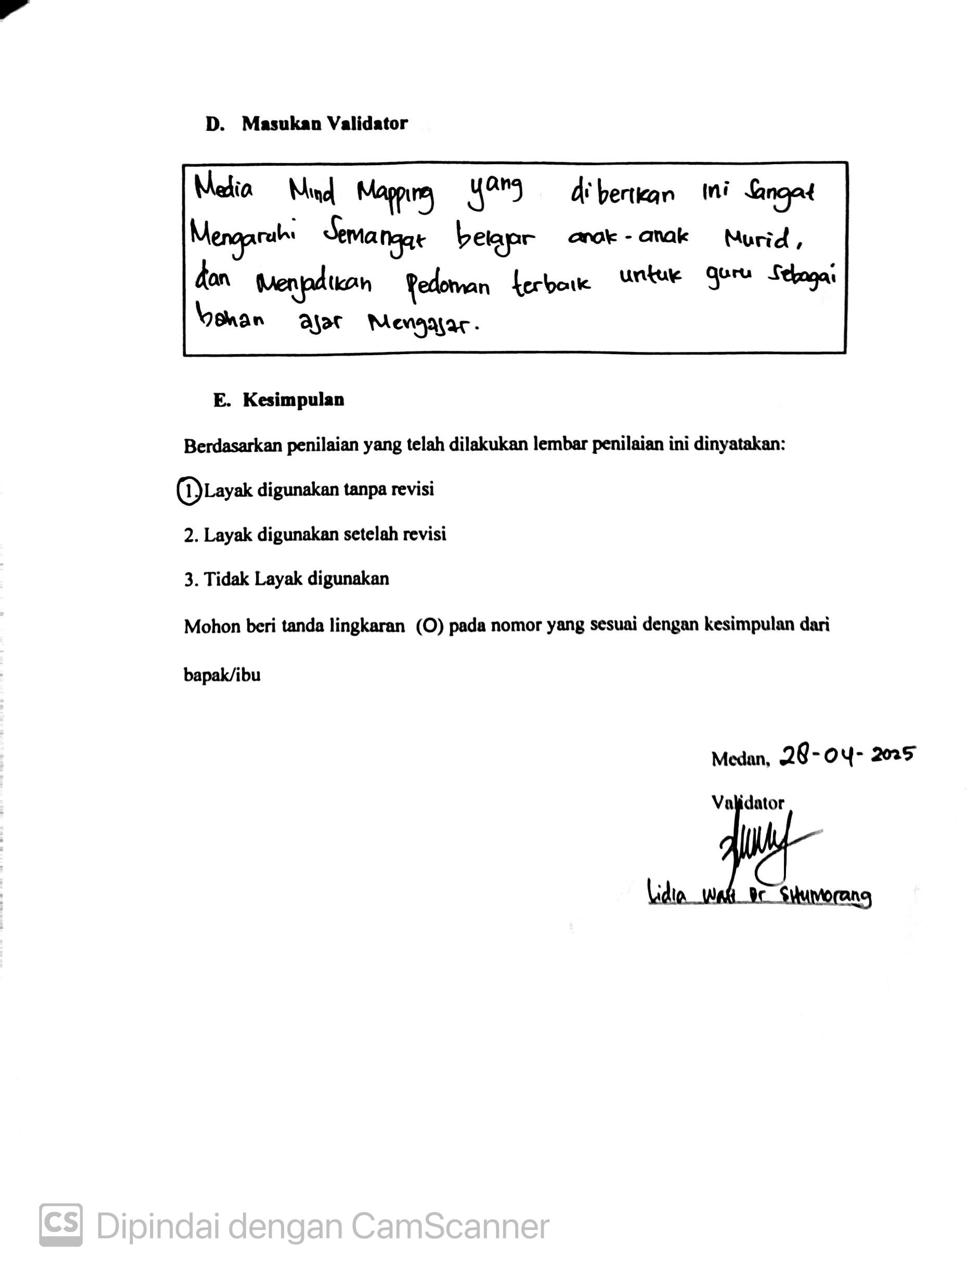 D. Masukan Validator
Media Mind Mapping yang diberikan ini Sangat
Mengaruhi Semangat belajar anak-anak Murid,
dan Menjadikan Pedoman terbaik untuk guru Sebagai
bahan ajar Mengajar.
E. Kesimpulan
Berdasarkan penilaian yang telah dilakukan lembar penilaian ini dinyatakan:
1. Layak digunakan tanpa revisi
2. Layak digunakan setelah revisi
3. Tidak Layak digunakan
Mohon beri tanda lingkaran (O) pada nomor yang sesuai dengan kesimpulan dari
bapak/ibu
Medan, 28-04-2025
Validator
Lidia Wati Br Situmorang
CS Dipindai dengan CamScanner